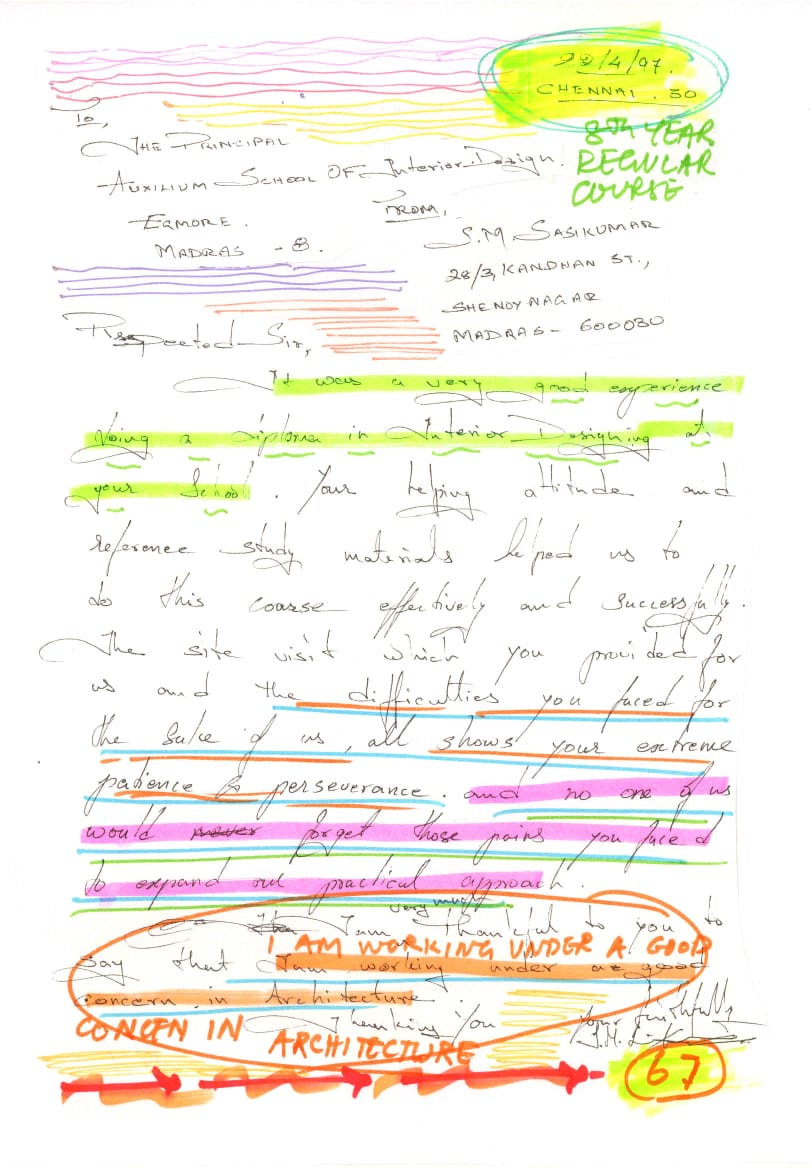 22/4/97.
CHENNAI. 30
8th YEAR
REGULAR
COURSE
To,
THE PRINCIPAL
AUXILIUM SCHOOL OF Interior Design.
EGMORE.
MADRAS - 8.
FROM,
S.M SASIKUMAR
28/3, KANDHAN ST.,
SHENOY NAGAR
MADRAS - 600030
Respected Sir,
It was a very good experience
doing a diploma in Interior Designing at
your School. Your helping attitude and
reference study materials helped us to
do this course effectively and successfully.
The site visit which you provided for
us and the difficulties you faced for
the sake of us, all shows your extreme
patience & perseverance. and no one of us
would never forget those pains you faced
to expand our practical approach.
I am very much Thankful to you to
I AM WORKING UNDER A GOOD
say that I am working under a good
concern in Architecture.
CONCEN IN ARCHITECTURE
Thanking You
Yours faithfully
67